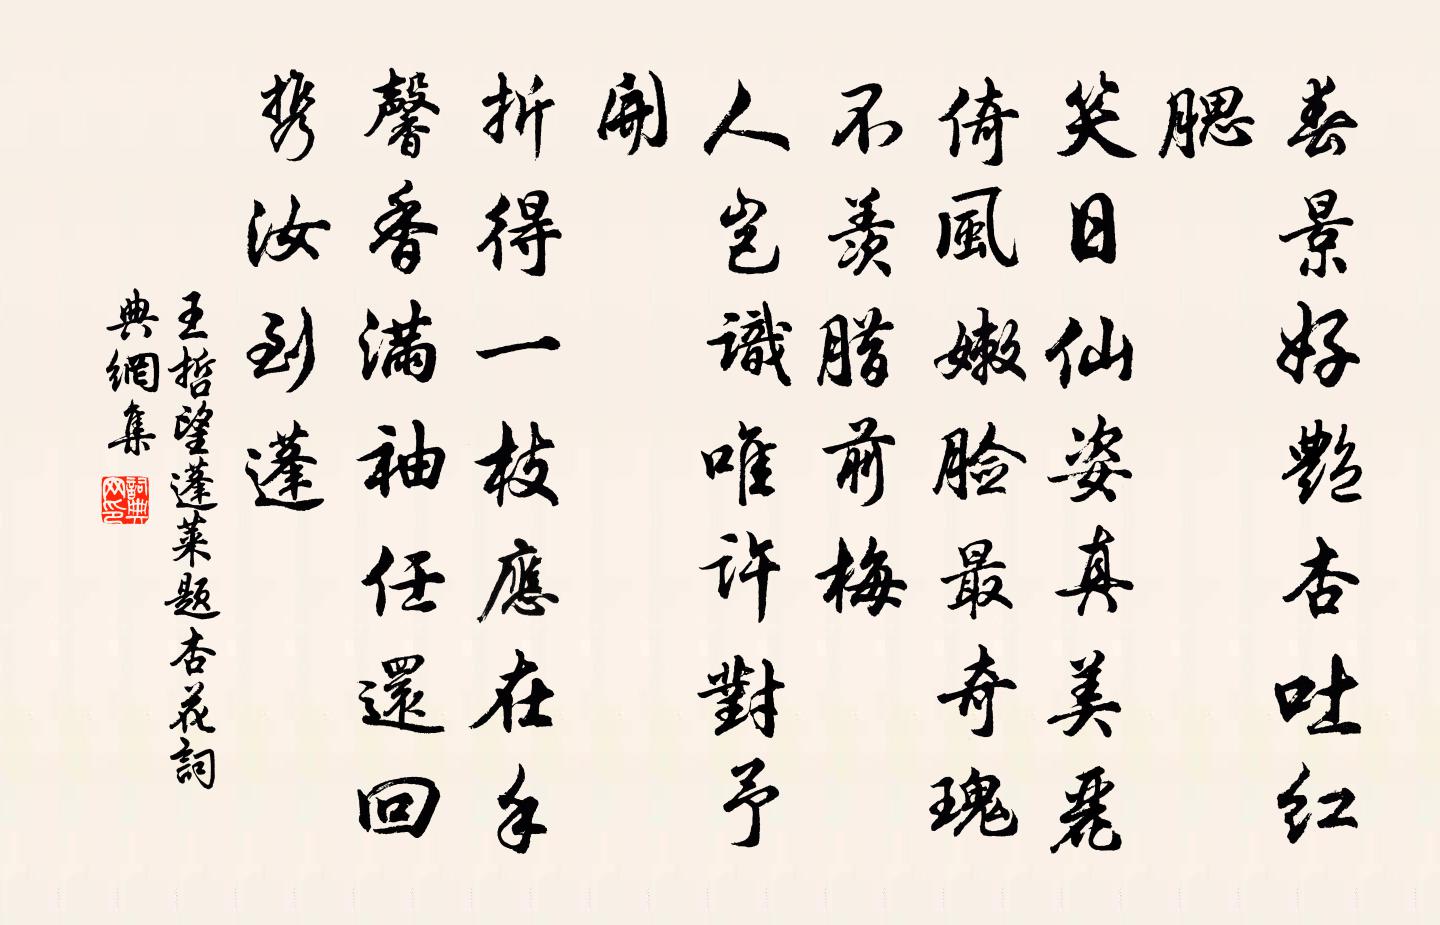 春景好艷杏吐红
腮
笑日仙姿真美麗
倚風嫩臉最奇瑰
不羨腊前梅
人岂識唯許對予
開
折得一枝應在手
馨香满袖任還回
携汝到蓬
王哲望蓬莱題杏花詞
典網集
詞典网印